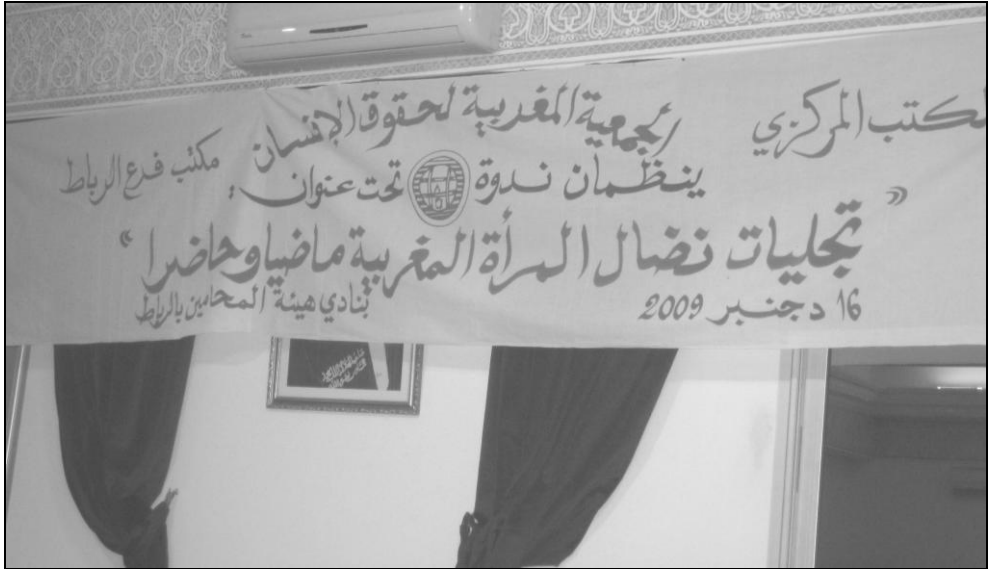 لمكتب المركزي الجمعية المغربية لحقوق الإنسان مكتب فرع الرباط
ينظمان ندوة تحت عنوان :
" تجليات نضال المرأة المغربية ماضيا وحاضرا "
16 دجنبر 2009 بنادي هيئة المحامين بالرباط